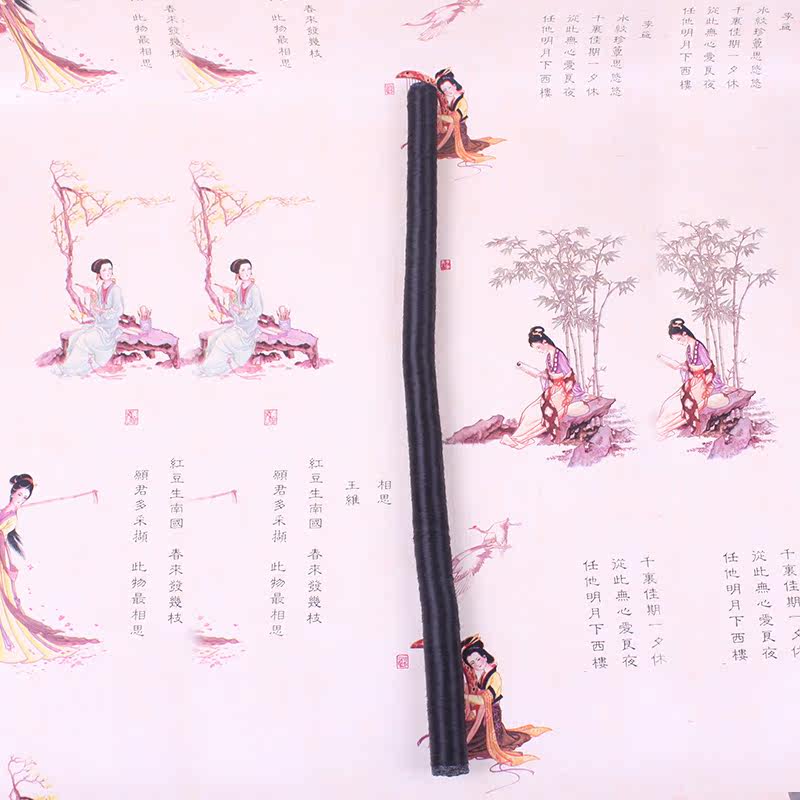 春來發幾枝
此物最相思
春來發幾枝
此物最相思
李益
水紋珍簟思悠悠
千裏佳期一夕休
從此無心愛良夜
任他明月下西樓
李益
水紋珍簟思悠悠
千裏佳期一夕休
從此無心愛良夜
任他明月下西樓
相思
王維
紅豆生南國 春來發幾枝
願君多采擷 此物最相思
紅豆生南國 春來發幾枝
願君多采擷 此物最相思
千裏佳期一夕休
從此無心愛良夜
任他明月下西樓
千裏佳期一夕休
從此無心愛良夜
任他明月下西樓